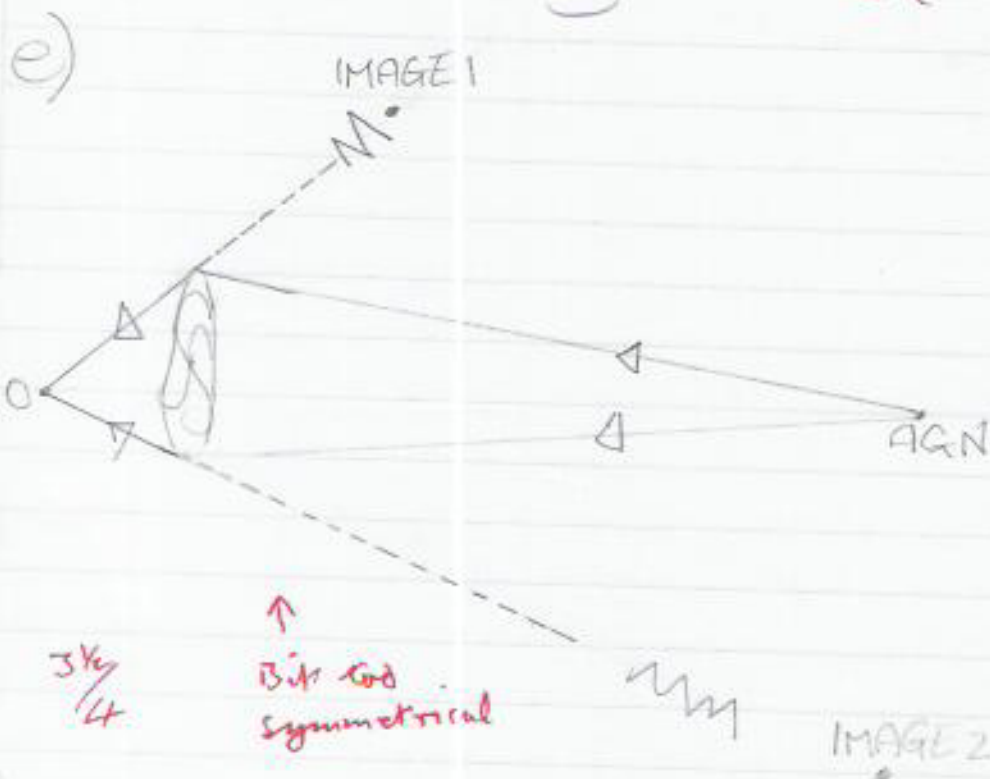 e)
IMAGE 1
O
AGN
3½/4
Bit too
symmetrical
IMAGE 2